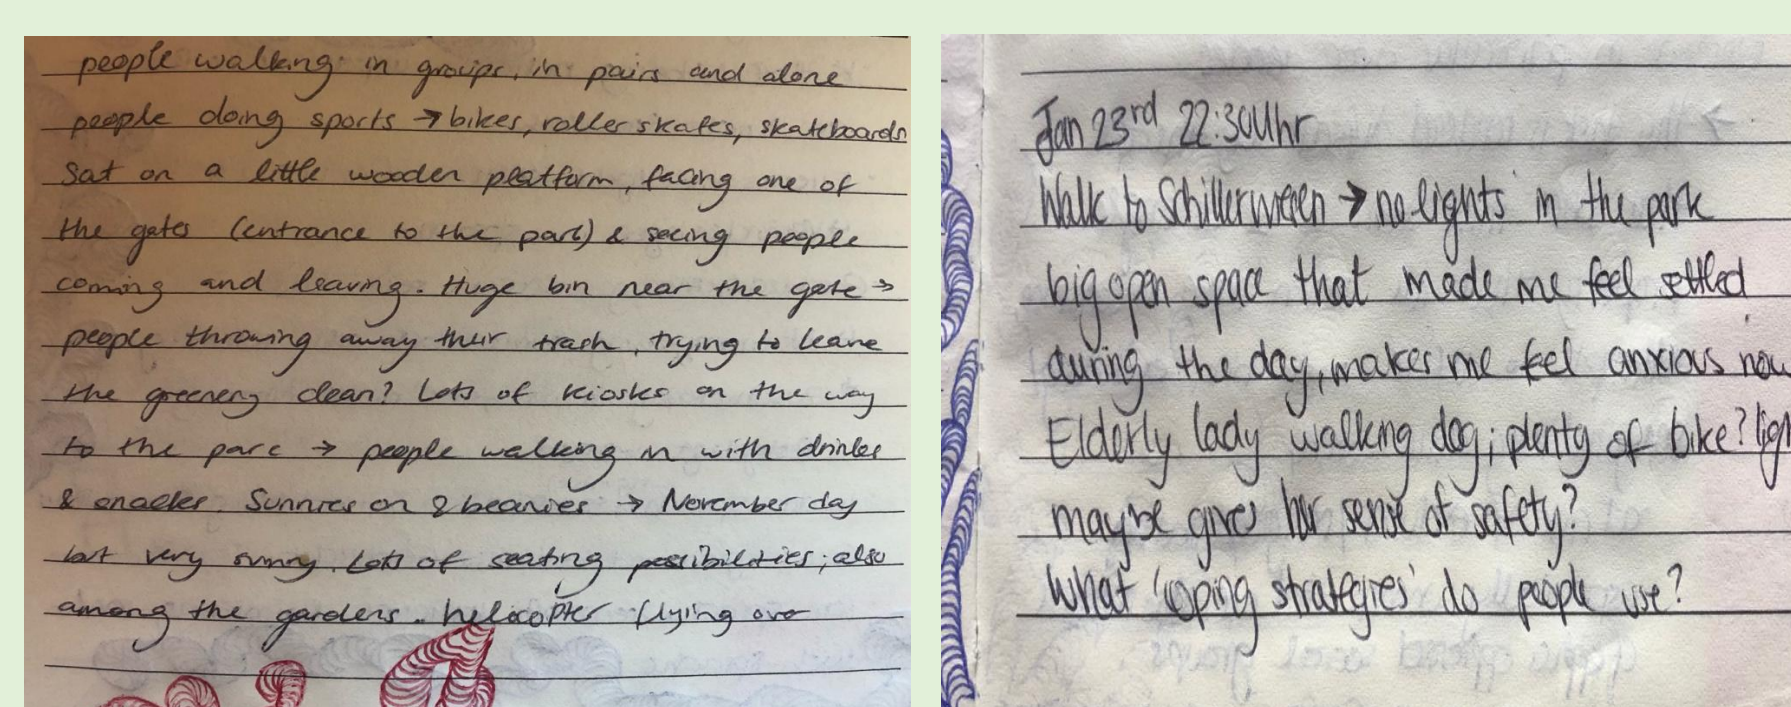 people walking in groups, in pairs and alone
people doing sports → bikes, roller skates, skateboards
Sat on a little wooden platform, facing one of
the gates (entrance to the parc) & seeing people
coming and leaving. Huge bin near the gate →
people throwing away their trash, trying to leave
the greenery clean? Lots of kiosks on the way
to the parc → people walking in with drinks
& snacks. Sunnies on & beanies → November day
but very sunny. Lots of seating possibilities; also
among the gardens. helicopter flying over
Jan 23rd 22:30Uhr
Walk to → no lights in the park
big open space that made me feel settled
during the day, makes me feel anxious now
Elderly lady walking dog; plenty of bike?
maybe gives her sense of safety?
What 'coping strategies' do people use?